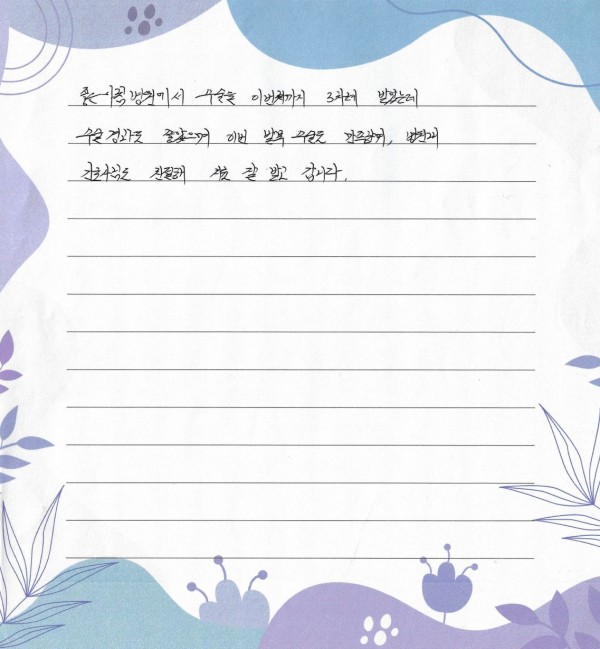 병원에서 수술을 이번까지 3차례 받았는데
수술 결과도 좋았으며 이번 발목 수술도 만족하며, 병원과
간호사님도 친절해 치료 잘 받고 갑니다.